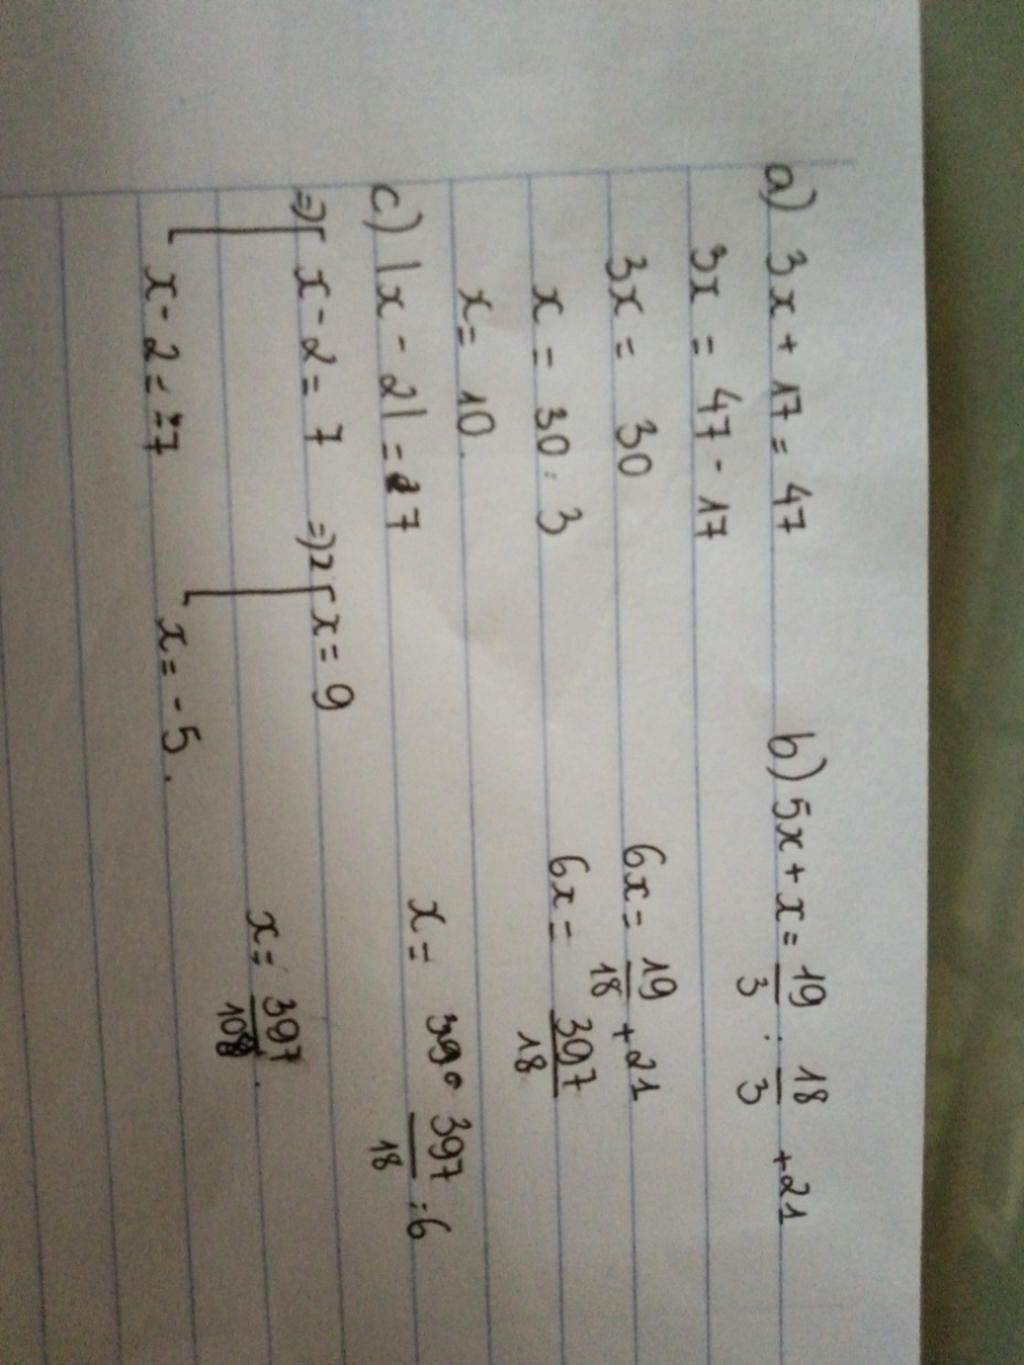 a) 3x + 17 = 47
3x = 47 - 17
3x = 30
x = 30 : 3
x = 10.
b) 5x + x = 19/3 : 18/3 + 21
6x = 19/18 + 21
6x = 397/18
x = 397/18 : 6
x = 397/108.
c) |x - 2| = 7
=> [ x - 2 = 7 => [ x = 9
x - 2 = -7 x = -5.